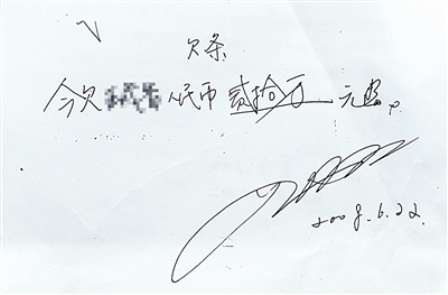 欠条
今欠 人民币 贰拾万 元整。
2008.6.22.